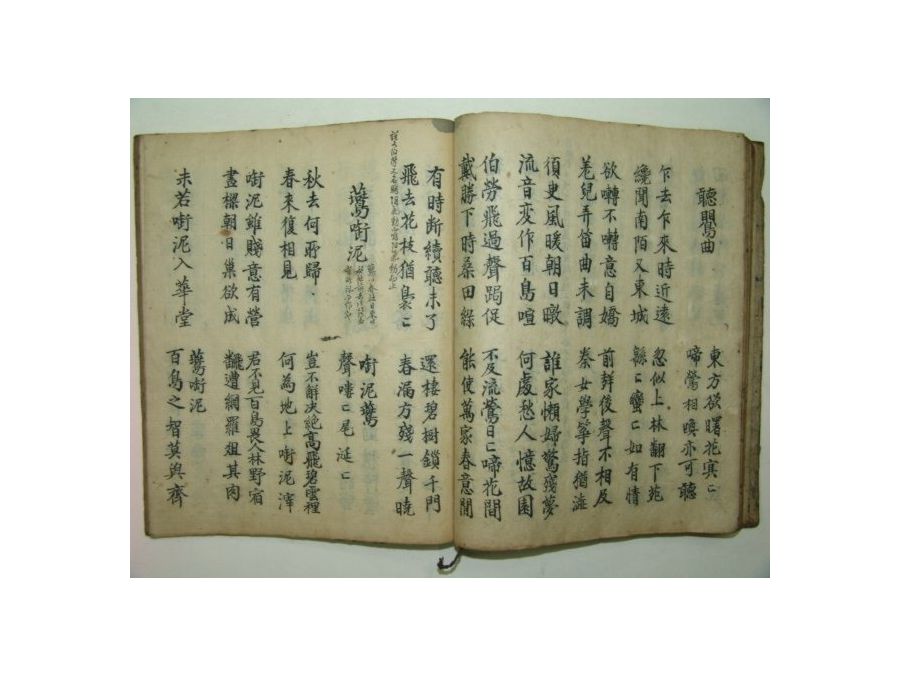 聽鸎曲
東方欲曙花冥〻
啼鶯相喚亦可聽
乍去乍來時近遠
纔聞南陌又東城
忽似上林翻下苑
緜〻蠻〻如有情
欲囀不囀意自嬌
羌兒弄笛曲未調
前聲後聲不相及
秦女學箏指猶澁
須臾風暖朝日暾
流音變作百鳥喧
誰家懶婦驚殘夢
何處愁人憶故園
伯勞飛過聲跼促
戴勝下時桑田綠
不及流鶯日〻啼花間
能使萬家春意閒
有時断續聽未了
飛去花枝猶裊〻
還棲碧樹鎖千門
春漏方殘一聲曉
鷰啣泥
啣泥鷰
聲嘍〻尾涎〻
秋去何所歸
春來復相見
豈不解决絕高飛碧雲裡
何為地上啣泥滓
啣泥雖賤意有營
畫樑朝日巢欲成
君不見百鳥畏人林野宿
飜遭網羅俎其肉
未若啣泥入華堂
鷰啣泥
百鳥之智莫與齊